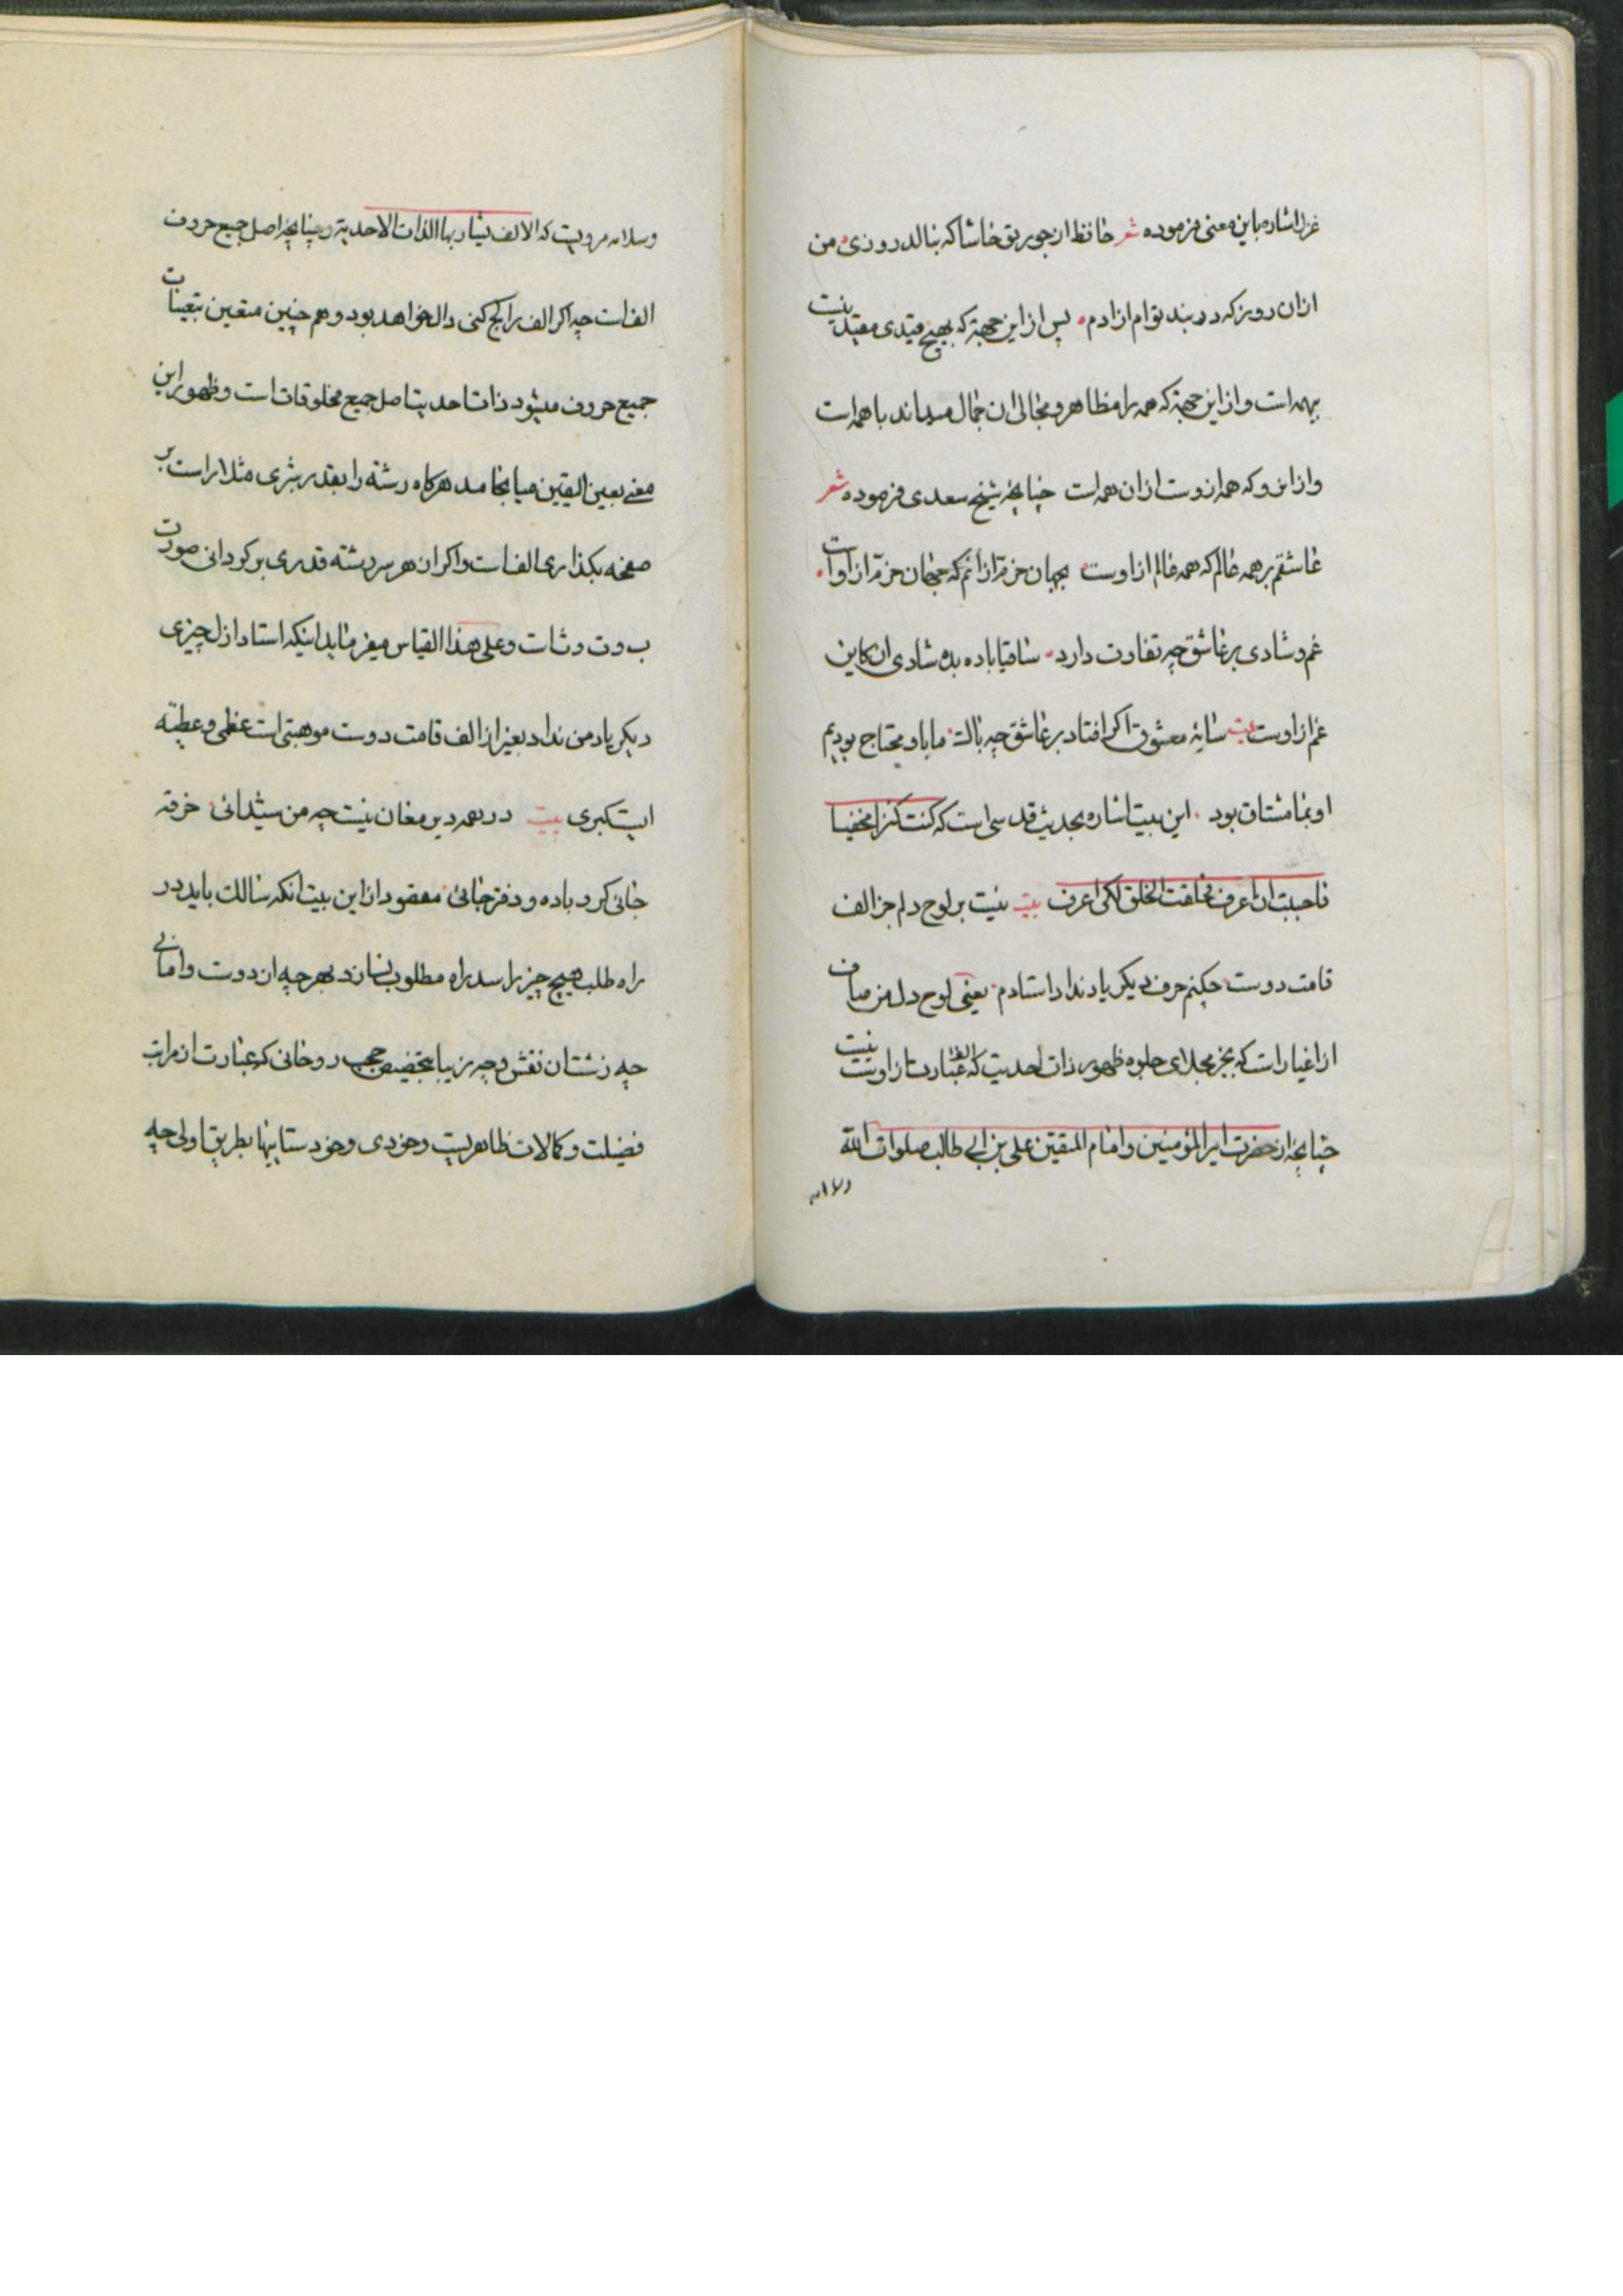 غزل اشاره باین معنی فرموده شعر حافظ از جور تو حاشا که بنالد روزی من
ازان روز که در بند توام ازادم پس از این جهة که بهیچ قیدی مقید نیست
بهمه است و از این جهة که همه را مظاهر و مجالی ان جمال میداند با همه است
و از این رو که همه از وست از ان همه است چنانچه شیخ سعدی فرموده شعر
عاشقم بر همه عالم که همه عالم از اوست بجهان خرم از انم که جهان خرم از او است
غم و شادی بر عاشق چه تفاوت دارد ساقیا باده بده شادی ان کاین
غم از اوست بیت سایهٔ معشوق اکر افتاد بر عاشق چه باک ما باو محتاج بودیم
او بما مشتاق بود این بیت اشاره بحدیث قدسی است که کنت کنزا مخفیا
فاحببت ان اعرف فخلقت الخلق لکی اعرف بیت نیست بر لوح دلم جز الف
قامت دوست چکنم حرف دیکر یاد نداد استادم یعنی لوح دل من صاف
از اغیار است که بجز مجلای جلوه ظهور ذات احدیت که الف عبارت از اوست نیست
چنانچه از حضرت امیر المؤمنین و امام المتقین علی بن ابی طالب صلوات الله
وسلامه
وسلامه مرویست که الالف یشار بها الذات الاحدیة و چنانچه اصل جمیع حروف
الف است چه اکر الف را کج کنی دال خواهد بود و هم چنین متعین بتعینات
جمیع حروف میشود ذات احدیت اصل جمیع مخلوقات است و ظهور این
معنی بعین الیقین میانجامد هرکاه رشته را بقدر شبری مثلا راست بر
صفحه بکذاری الف است و اکر ان هر سر رشته قدری برکردانی صورت
ب و ت و ث است و علی هذا القیاس میفرماید اینکه استاد ازل چیزی
دیکر یاد من نداد بغیر از الف قامت دوست موهبتی است عظمی و عطیه
ایست کبری بیت در همه دیر مغان نیست چه من شیدائی خرقه
جائی کرو باده و دفتر جائی مقصود از این بیت انکه سالک باید در
راه طلب هیچ چیز را سد راه مطلوب نسازد بهرچه از دوست وامانی
چه زشت ان نقش و چه زیبا بتخصیص حجب روحانی که عبارت از مراتب
فضیلت و کمالات ظاهریست و خودی و خودستاییها بطریق اولی چه